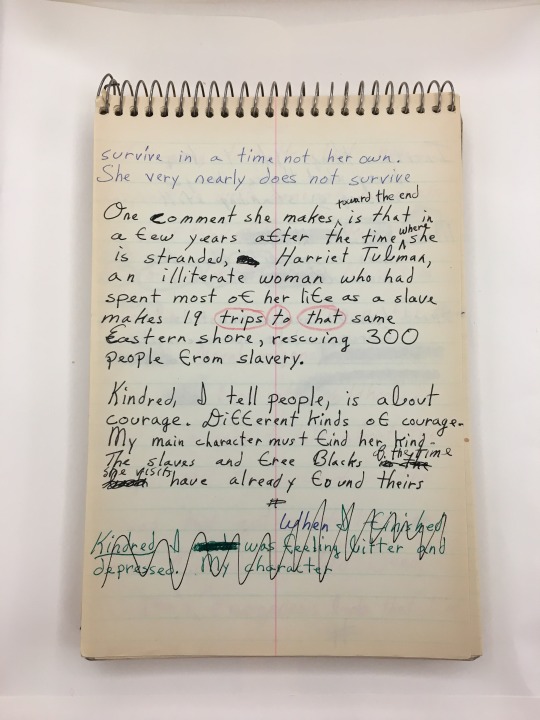 survive in a time not her own.
She very nearly does not survive
toward the end
One comment she makes, is that in
a few years after the time where she
is stranded, Harriet Tubman,
an illiterate woman who had
spent most of her life as a slave
makes 19 trips to that same
Eastern shore, rescuing 300
people from slavery.
Kindred, I tell people, is about
courage. Different kinds of courage.
My main character must find her kind-
The slaves and free Blacks of the time
she visits have already found theirs
#
When I finished
Kindred I was feeling bitter and
depressed. My character